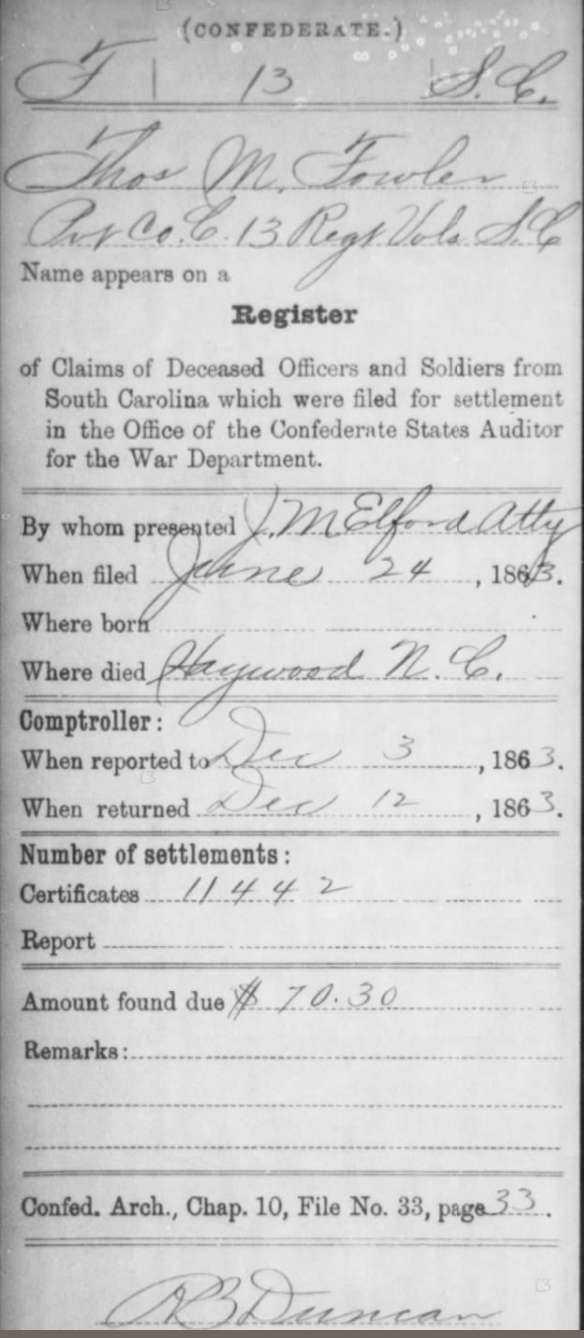 (CONFEDERATE.)
F | 13 | S.C.
Thos M. Fowler
Pvt Co. C. 13 Regt Vols S.C
Name appears on a
Register
of Claims of Deceased Officers and Soldiers from
South Carolina which were filed for settlement
in the Office of the Confederate States Auditor
for the War Department.
By whom presented J. M Elford Atty
When filed June 24, 1863.
Where born
Where died Haywood N. C.
Comptroller:
When reported to Dec 3, 1863.
When returned Dec 12, 1863.
Number of settlements:
Certificates 11442
Report
Amount found due $ 70.30
Remarks:
Confed. Arch., Chap. 10, File No. 33, page 33.
RB Duncan